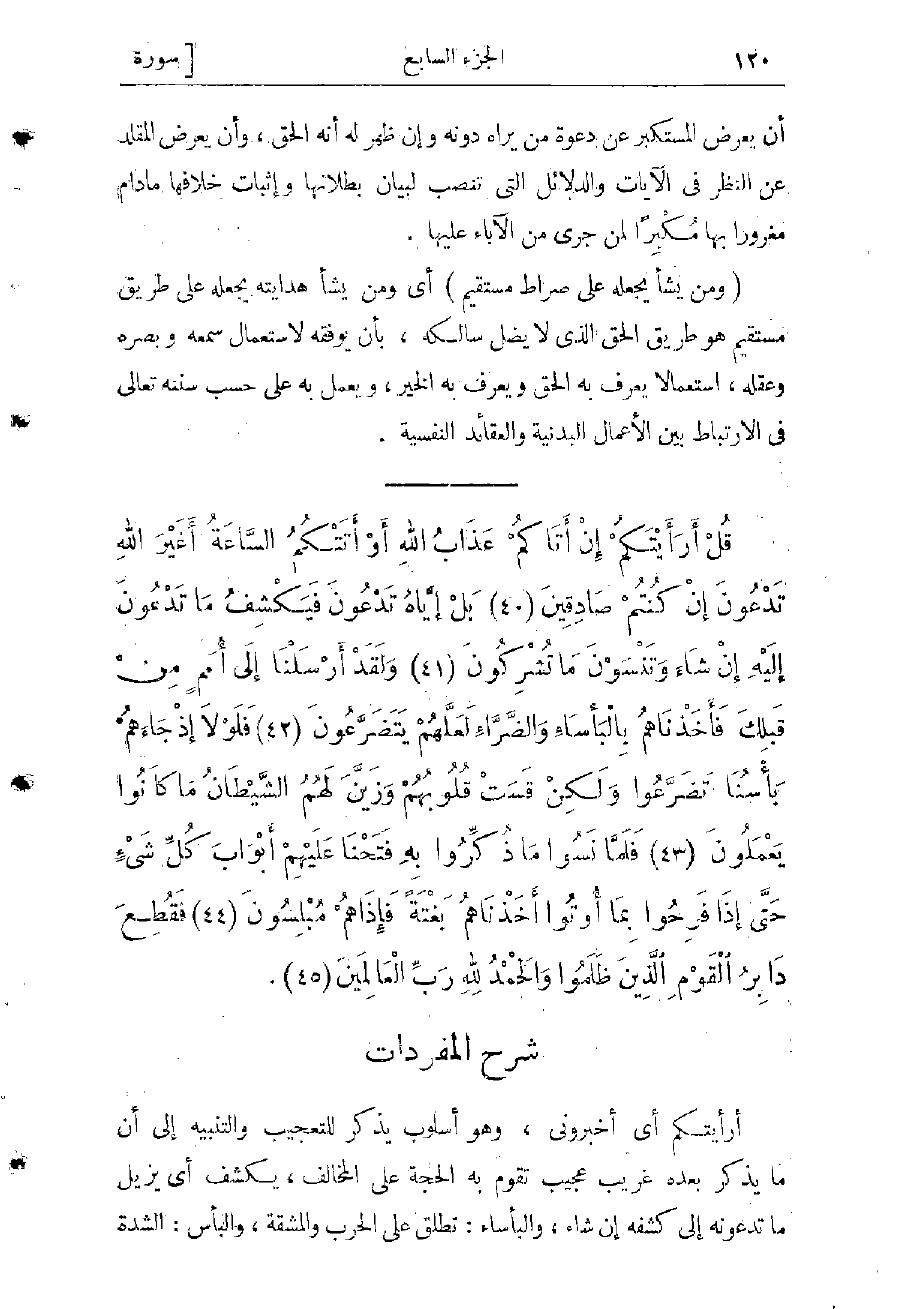 ١٢٠ الجزء السابع [ سورة
أن يعرض المستكبر عن دعوة من يراه دونه وإن ظهر له أنه الحق ، وأن يعرض المقلد
عن النظر فى الآيات والدلائل التى تنصب لبيان بطلانها وإثبات خلافها مادام
مغرورا بها مُكْبِرًا لمن جرى من الآباء عليها .
( ومن يشأ يجعله على صراط مستقيم ) أى ومن يشأ هدايته يجعله على طريق
مستقيم هو طريق الحق الذى لا يضل سالكه ، بأن يوفقه لاستعمال سمعه وبصره
وعقله ، استعمالا يعرف به الحق ويعرف به الخير ، ويعمل به على حسب سننه تعالى
فى الارتباط بين الأعمال البدنية والعقائد النفسية .
قُلْ أَرَأَيْتَكُمْ إِنْ أَتَاكُمْ عَذَابُ اللهِ أَوْ أَتَتْكُمُ السَّاعَةُ أَغَيْرَ اللهِ
تَدْعُونَ إِنْ كُنْتُمْ صَادِقِينَ (٤٠) بَلْ إِيَّاهُ تَدْعُونَ فَيَكْشِفُ مَا تَدْعُونَ
إِلَيْهِ إِنْ شَاءَ وَتَنْسَوْنَ مَا تُشْرِكُونَ (٤١) وَلَقَدْ أَرْسَلْنَا إِلَى أُمَمٍ مِنْ
قَبْلِكَ فَأَخَذْنَاهُمْ بِالْبَأْسَاءِ وَالضَّرَّاءِ لَعَلَّهُمْ يَتَضَرَّعُونَ (٤٢) فَلَوْلَا إِذْ جَاءَهُمْ
بَأْسُنَا تَضَرَّعُوا وَلَكِنْ قَسَتْ قُلُوبُهُمْ وَزَيَّنَ لَهُمُ الشَّيْطَانُ مَا كَانُوا
يَعْمَلُونَ (٤٣) فَلَمَّا نَسُوا مَا ذُكِّرُوا بِهِ فَتَحْنَا عَلَيْهِمْ أَبْوَابَ كُلِّ شَىْءٍ
حَتَّى إِذَا فَرِحُوا بِمَا أُوتُوا أَخَذْنَاهُمْ بَغْتَةً فَإِذَاهُمْ مُبْلِسُونَ (٤٤) فَقُطِعَ
دَابِرُ ٱلْقَوْمِ ٱلَّذِينَ ظَلَمُوا وَالْحَمْدُ لِلهِ رَبِّ الْعَالَمِينَ (٤٥) .
شرح المفردات
أرأيتكم أى أخبرونى ، وهو أسلوب يذكر للتعجيب والتنبيه إلى أن
ما يذكر بعده غريب عجيب تقوم به الحجة على المخالف ، يكشف أى يزيل
ما تدعونه إلى كشفه إن شاء ، والبأساء : تطلق على الحرب والمشقة ، والبأس : الشدة